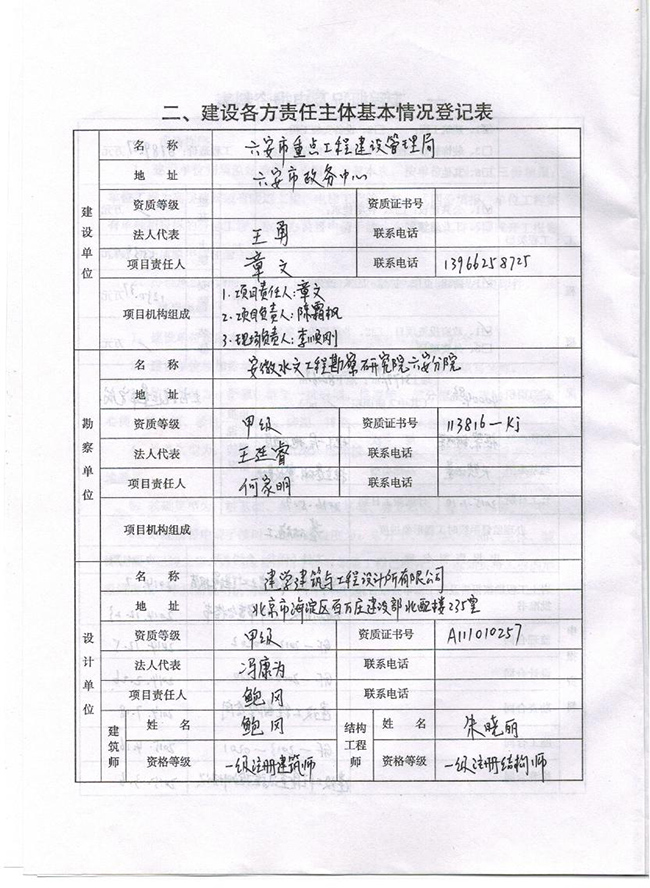 二、建设各方责任主体基本情况登记表
建设单位
名 称 六安市重点工程建设管理局
地 址 六安市政务中心
资质等级 资质证书号
法人代表 王勇 联系电话
项目责任人 章文 联系电话 13966258725
项目机构组成
1.项目责任人:章文
2.项目负责人:陈霜枫
3.现场负责人:李顺刚
勘察单位
名 称 安徽水文工程勘察研究院六安分院
地 址
资质等级 甲级 资质证书号 113816-kj
法人代表 王廷睿 联系电话
项目责任人 何家明 联系电话
项目机构组成
设计单位
名 称 建学建筑与工程设计所有限公司
地 址 北京市海淀区百万庄建设部北配楼235室
资质等级 甲级 资质证书号 A111010257
法人代表 冯康为 联系电话
项目责任人 鲍冈 联系电话
建筑师 姓 名 鲍冈 结构工程师 姓 名 朱晓丽
资格等级 一级注册建筑师 资格等级 一级注册结构师